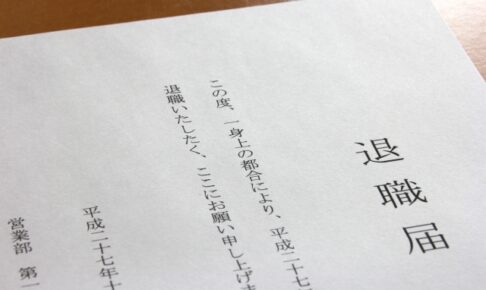 退職届
この度、一身上の都合により、平成二十七
退職いたしたく、ここにお願い申し上げま
平成二十七年十
営業部 第一